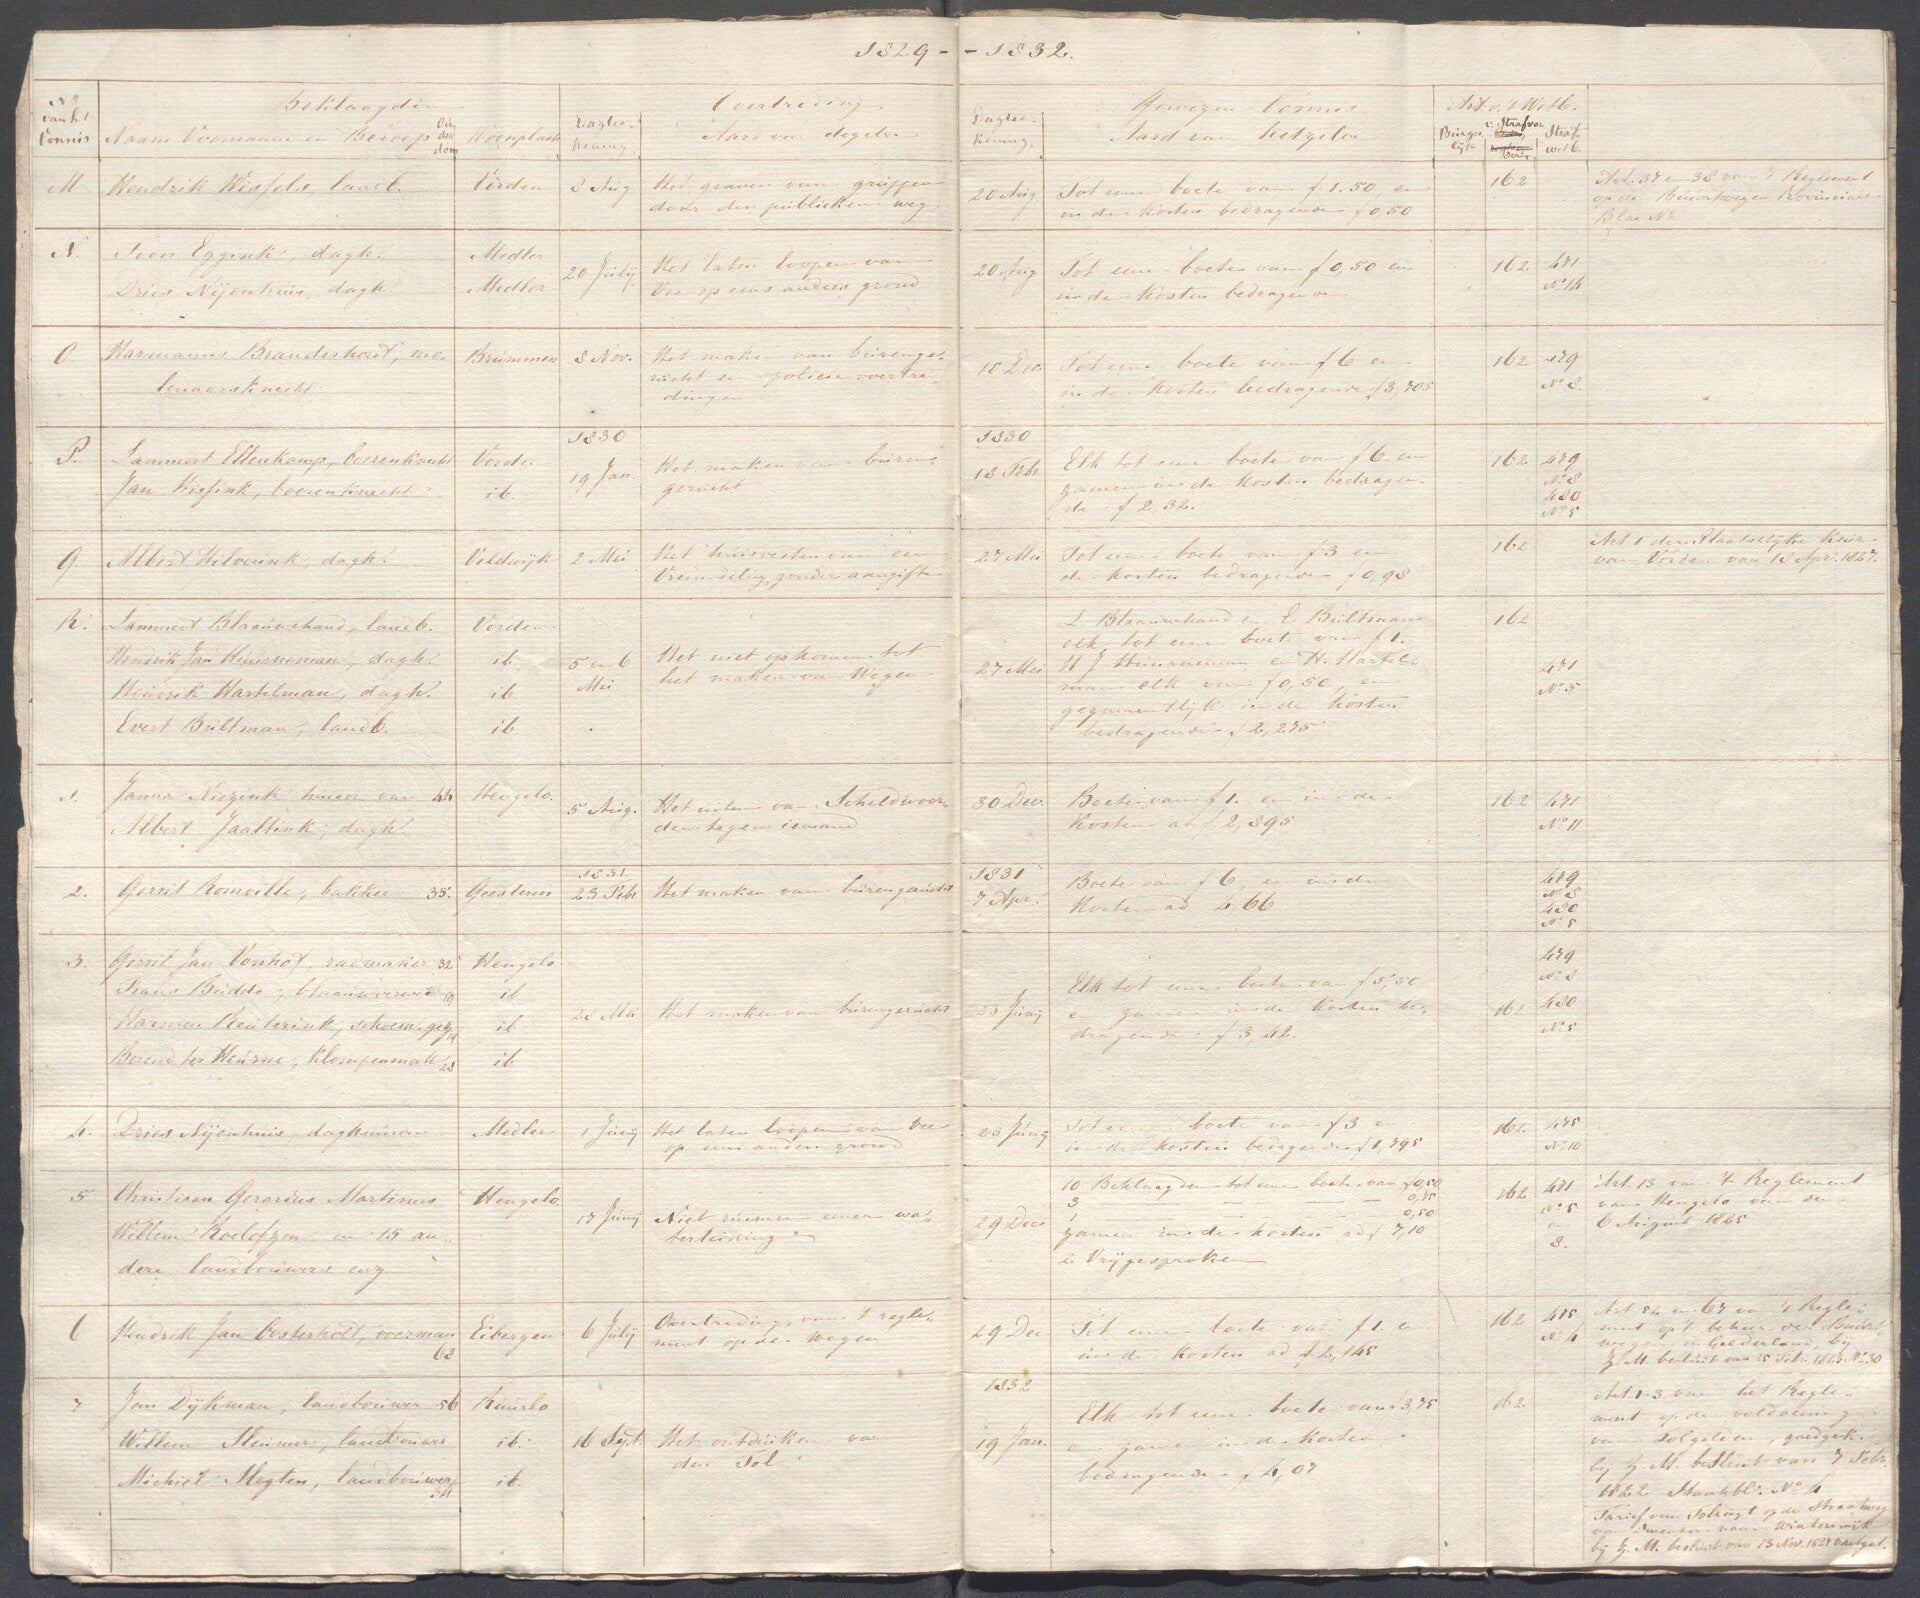 1829 - - 1832.
No van het Vonnis
Beklaagden
Naam Voornaam Beroep Ouderdom Woonplaats
Dagteekening
Overtreding
Aard van dezelve
Dagteekening
Gewezen Vonnis
Aard van hetzelve
Art. v. 't Wetb.
Burgerlijk v. Strafvor Strafwetb.
M. Hendrik Wissels, landb. Vorden 3 Aug Het graven van gruppen
door den publieken weg
20 Aug. Tot eene boete van f 1.50 en
in de kosten bedragende f 0,50
162
Art. 37 en 38 van 't Reglement
op de Buurtwegen Provinciaal
Blad No
N. Toon Eggink, dagh. Medler
Dries Nijenhuis, dagh. Medler
20 Julij Het laten loopen van
Vee op eens anders grond
20 Aug Tot eene boete van f 0,50 en
in de kosten bedragende
162 471
No 14
O. Harmanus Brandenhorst, mo-
lenaarsknecht
Brummen 8 Nov. Het maken van burenge-
rucht en policie overtre-
dingen
10 Dec. Tot eene boete van f 6 en
in de kosten bedragende f 3,705
162 479
No 8.
P. Lammert Ellenkamp, boerenknecht Vorden
Jan Wissink, boerenknecht ib.
1830
19 Jan. Het maken van buren
gerucht
1830
18 Febr. Elk tot eene boete van f 6 en
zamen in de kosten bedragen-
de f 2,32.
162 479
No 8
480
No 5
Q. Albert Wilverink, dagh. Veldwijk 2 Mei Het huisvesten van een
Vreemdeling zonder aangifte
27 Mei Tot eene boete van f 3 en
de kosten bedragende f 0,98
162
Art. 1 der Plaatselijke Keur
van Vorden van 18 Apr. 1827.
R. Lammert Blaauwhand, landb. Vorden
Hendrik Jan Huurneman, dagh. ib.
Hendrik Hartelman, dagh. ib.
Evert Bultman, landb. ib.
5 en 6
Mei
Het niet opkomen tot
het maken van Wegen
27 Mei
L Blaauwhand en E Bultman
elk tot eene boete van f 1.
H J Huurneman en H. Hartel-
man elk van f 0,50, en
gezamentlijk in de kosten
bedragende f 2,275
162
471
No 5
1. Janna Niezink huisv. van 44 Hengelo
Albert Jaaltink, dagh.
5 Aug. Het uiten van Scheldwoor-
den tegen iemand
30 Dec. Boete van f 1. en in de
Kosten ad f 2,895
162 471
No 11
2. Gerrit Romville, bakker 35. Geesteren
1831.
23 Febr Het maken van burengerucht
1831
7 Apr. Boete van f 6 en in de
Kosten ad 2,66
479
No 8
480
No 5
3. Gerrit Jan Vonhof, radmaker 32 Hengelo
Frans Budde, blaauwverver 19 ib
Harmen Reuterink, schoenm. gez. ib
Berend ter Heurne, klompenmak. 23 ib
22 Mei Het maken van burengerucht
23 Junij
Elk tot eene boete van f 5,50
en zamen in de kosten be-
dragende f 3,42.
162
479
No 8
480
No 5
4. Dries Nijenhuis, daghuurder Medler 1 Junij Het laten loopen van Vee
op eens anders grond
23 Junij Tot eene boete van f 3 en
in de kosten bedragende f 1,795
162 475
No 10
5 Christiaan Gerardus Martinus Hengelo
Willem Roelofzen en 15 an-
dere landbouwers enz
17 Junij Niet ruimen eener wa-
terleiding
29 Dec
10 Beklaagden tot eene boete van f 0,50
3 — — — — 0,75
1 — — — — 0,50
zamen in de kosten ad f 7,10
2 Vrijgesproken
162 471
No 5
en
8.
Art. 13 van 't Reglement
van Hengelo van den
6 August 1825
6 Hendrik Jan Oosterholt, voerman Eibergen
68
6 Julij Overtreding van 't regle-
ment op de wegen
29 Dec Tot eene boete van f 1. en
in de kosten ad f 2,145
162 475
No 4
Art 52 en 67 van 't Regle-
ment op 't beheer der Buurt-
wegen in Gelderland, bij
Z. M. besluit van 15 Febr. No 30
7 Jan Dijkman, landbouwer 56 Ruurlo
Willem Sleumer, landbouwer ib.
Michiel Slegten, landbouwer ib.
16 Sept. Het ontduiken van
den Tol
1832
19 Jan.
Elk tot eene boete van 3,75
en zamen in de kosten
bedragende f 4,07
162
Art. 1-3 van het Regle-
ment op de voldoening
van tolgelden, goedgek.
bij Z. M. besluit van 7 Febr.
1822 Staatsbl. No 4
Tarief van Tolregt op de Straatweg
van Deventer naar Winterswijk
bij Z. M. besluit van 13 Nov.